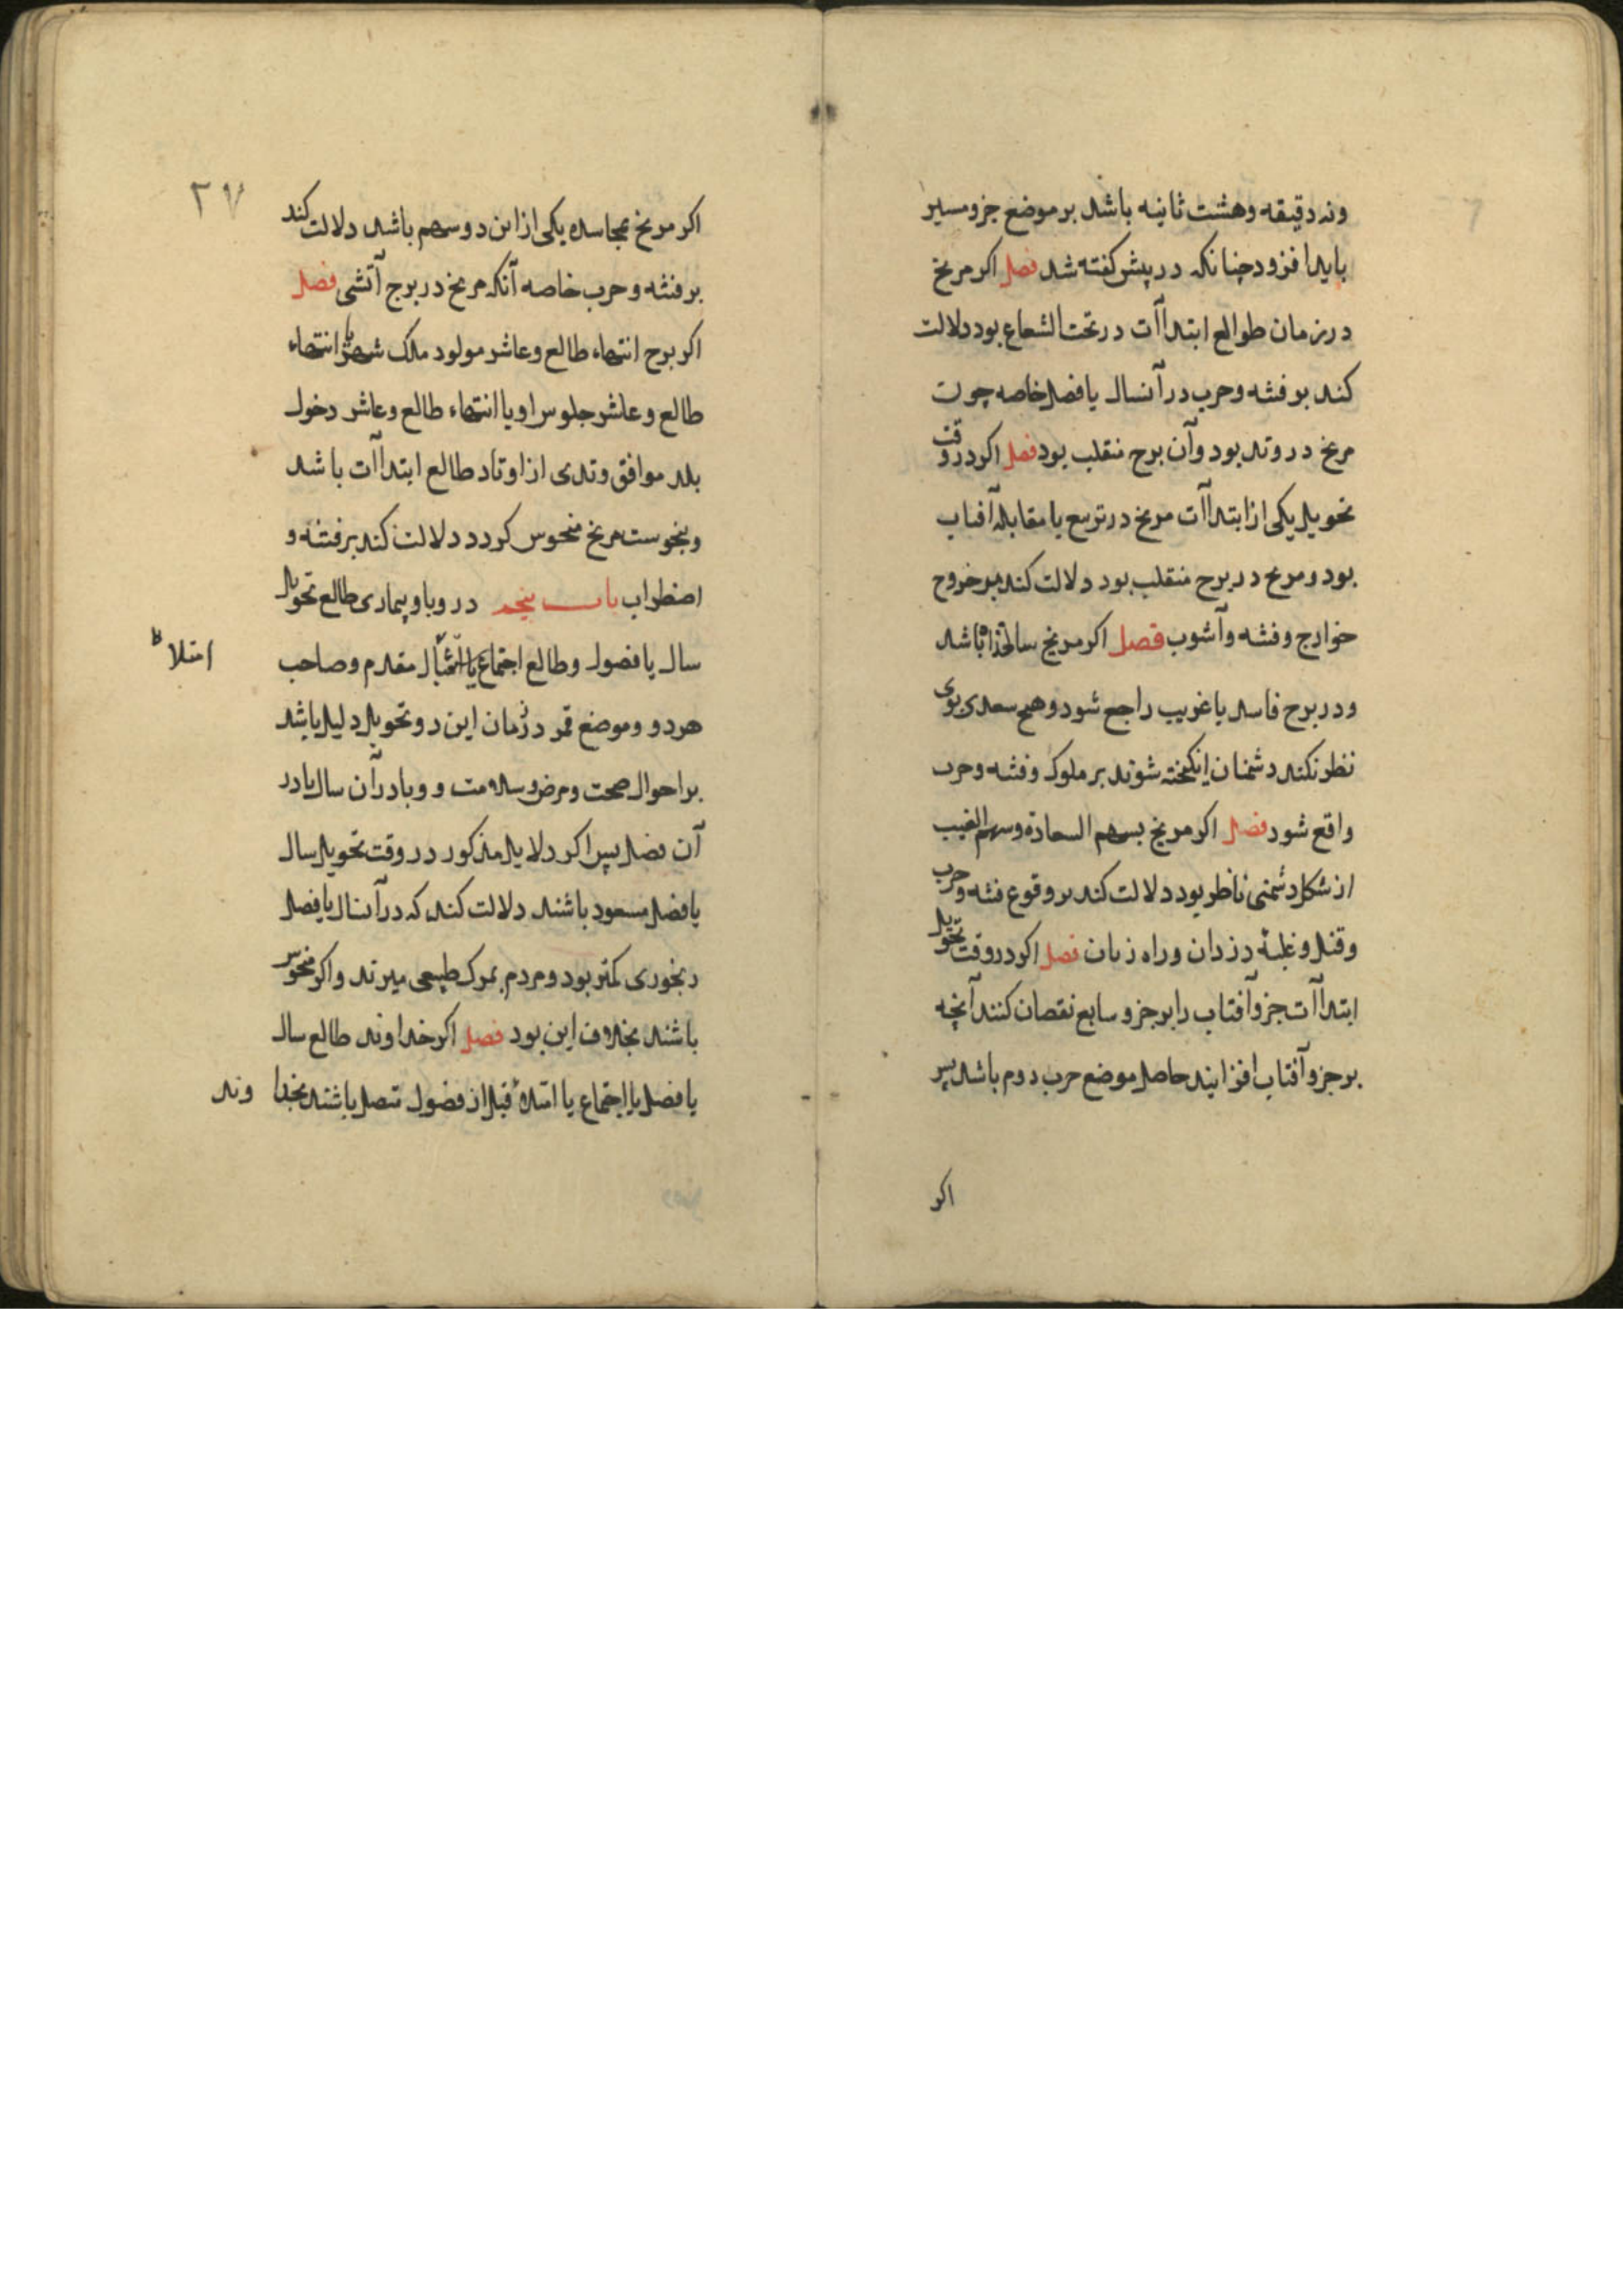 ونه دقیقه وهشت ثانیه باشد بر موضع جزو مسیر
باید افزود چنانکه در پیش کفته شد فصل اکر مریخ
در زمان طوالع ابتداآت در تحت الشعاع بود دلالت
کند بر فتنه وحرب در آنسال یا فصل خاصه چون
مریخ در وتد بود وآن برج منقلب بود فصل اکر در وقت
تحویل یکی از ابتداآت مریخ در تربیع یا مقابله آفتاب
بود ومریخ در برج منقلب بود دلالت کند بر خروج
خوارج وفتنه وآشوب فصل اکر مریخ سالخذاه باشد
ودر برج فاسد یا غریب راجع شود وهیچ سعدی بوی
نظر نکند دشمنان انکیخته شوند بر ملوک وفتنه وحرب
واقع شود فصل اکر مریخ بسهم السعادة وسهم الغیب
از شکل دشمنی ناظر بود دلالت کند بر وقوع فتنه وحرب
وقتل وغلبهٔ دزدان وراه زنان فصل اکر در وقت تحویل
ابتداآت جزو آفتاب را بر جزو سابع نقصان کنند آنچه
بر جزو آفتاب افزایند حاصل موضع حرب دوم باشد پس
اکر
۲۷
اکر مریخ بمجاسده یکی از این دو سهم باشد دلالت کند
بر فتنه وحرب خاصه آنکه مریخ در برج آتشی فصل
اکر برج انتهاء طالع وعاشر مولود ملک شهر یا انتهاء
طالع وعاشر جلوس او یا انتهاء طالع وعاشر دخول
بلد موافق وتدی از اوتاد طالع ابتداآت باشد
وبنحوست مریخ منحوس کردد دلالت کند بر فتنه و
اضطراب باب پنجم در وبا وبیماری طالع تحویل
سال یا فصول وطالع اجتماع یا مقدم وصاحب
امتلا ظ
هردو وموضع قمر در زمان این دو تحویل دلیل باشد
بر احوال صحت ومرض وسلامت و وبا در آن سال یا در
آن فصل پس اکر دلایل مذکور در وقت تحویل سال
یا فصل مسعود باشند دلالت کند که در آنسال یا فصل
رنجوری کمتر بود ومردم بمرک طبیعی میرند واکر منحوس
باشند بخلاف این بود فصل اکر خداوند طالع سال
یا فصل یا اجتماع یا امتلاء قبل از فصول متصل باشند بخدا وند